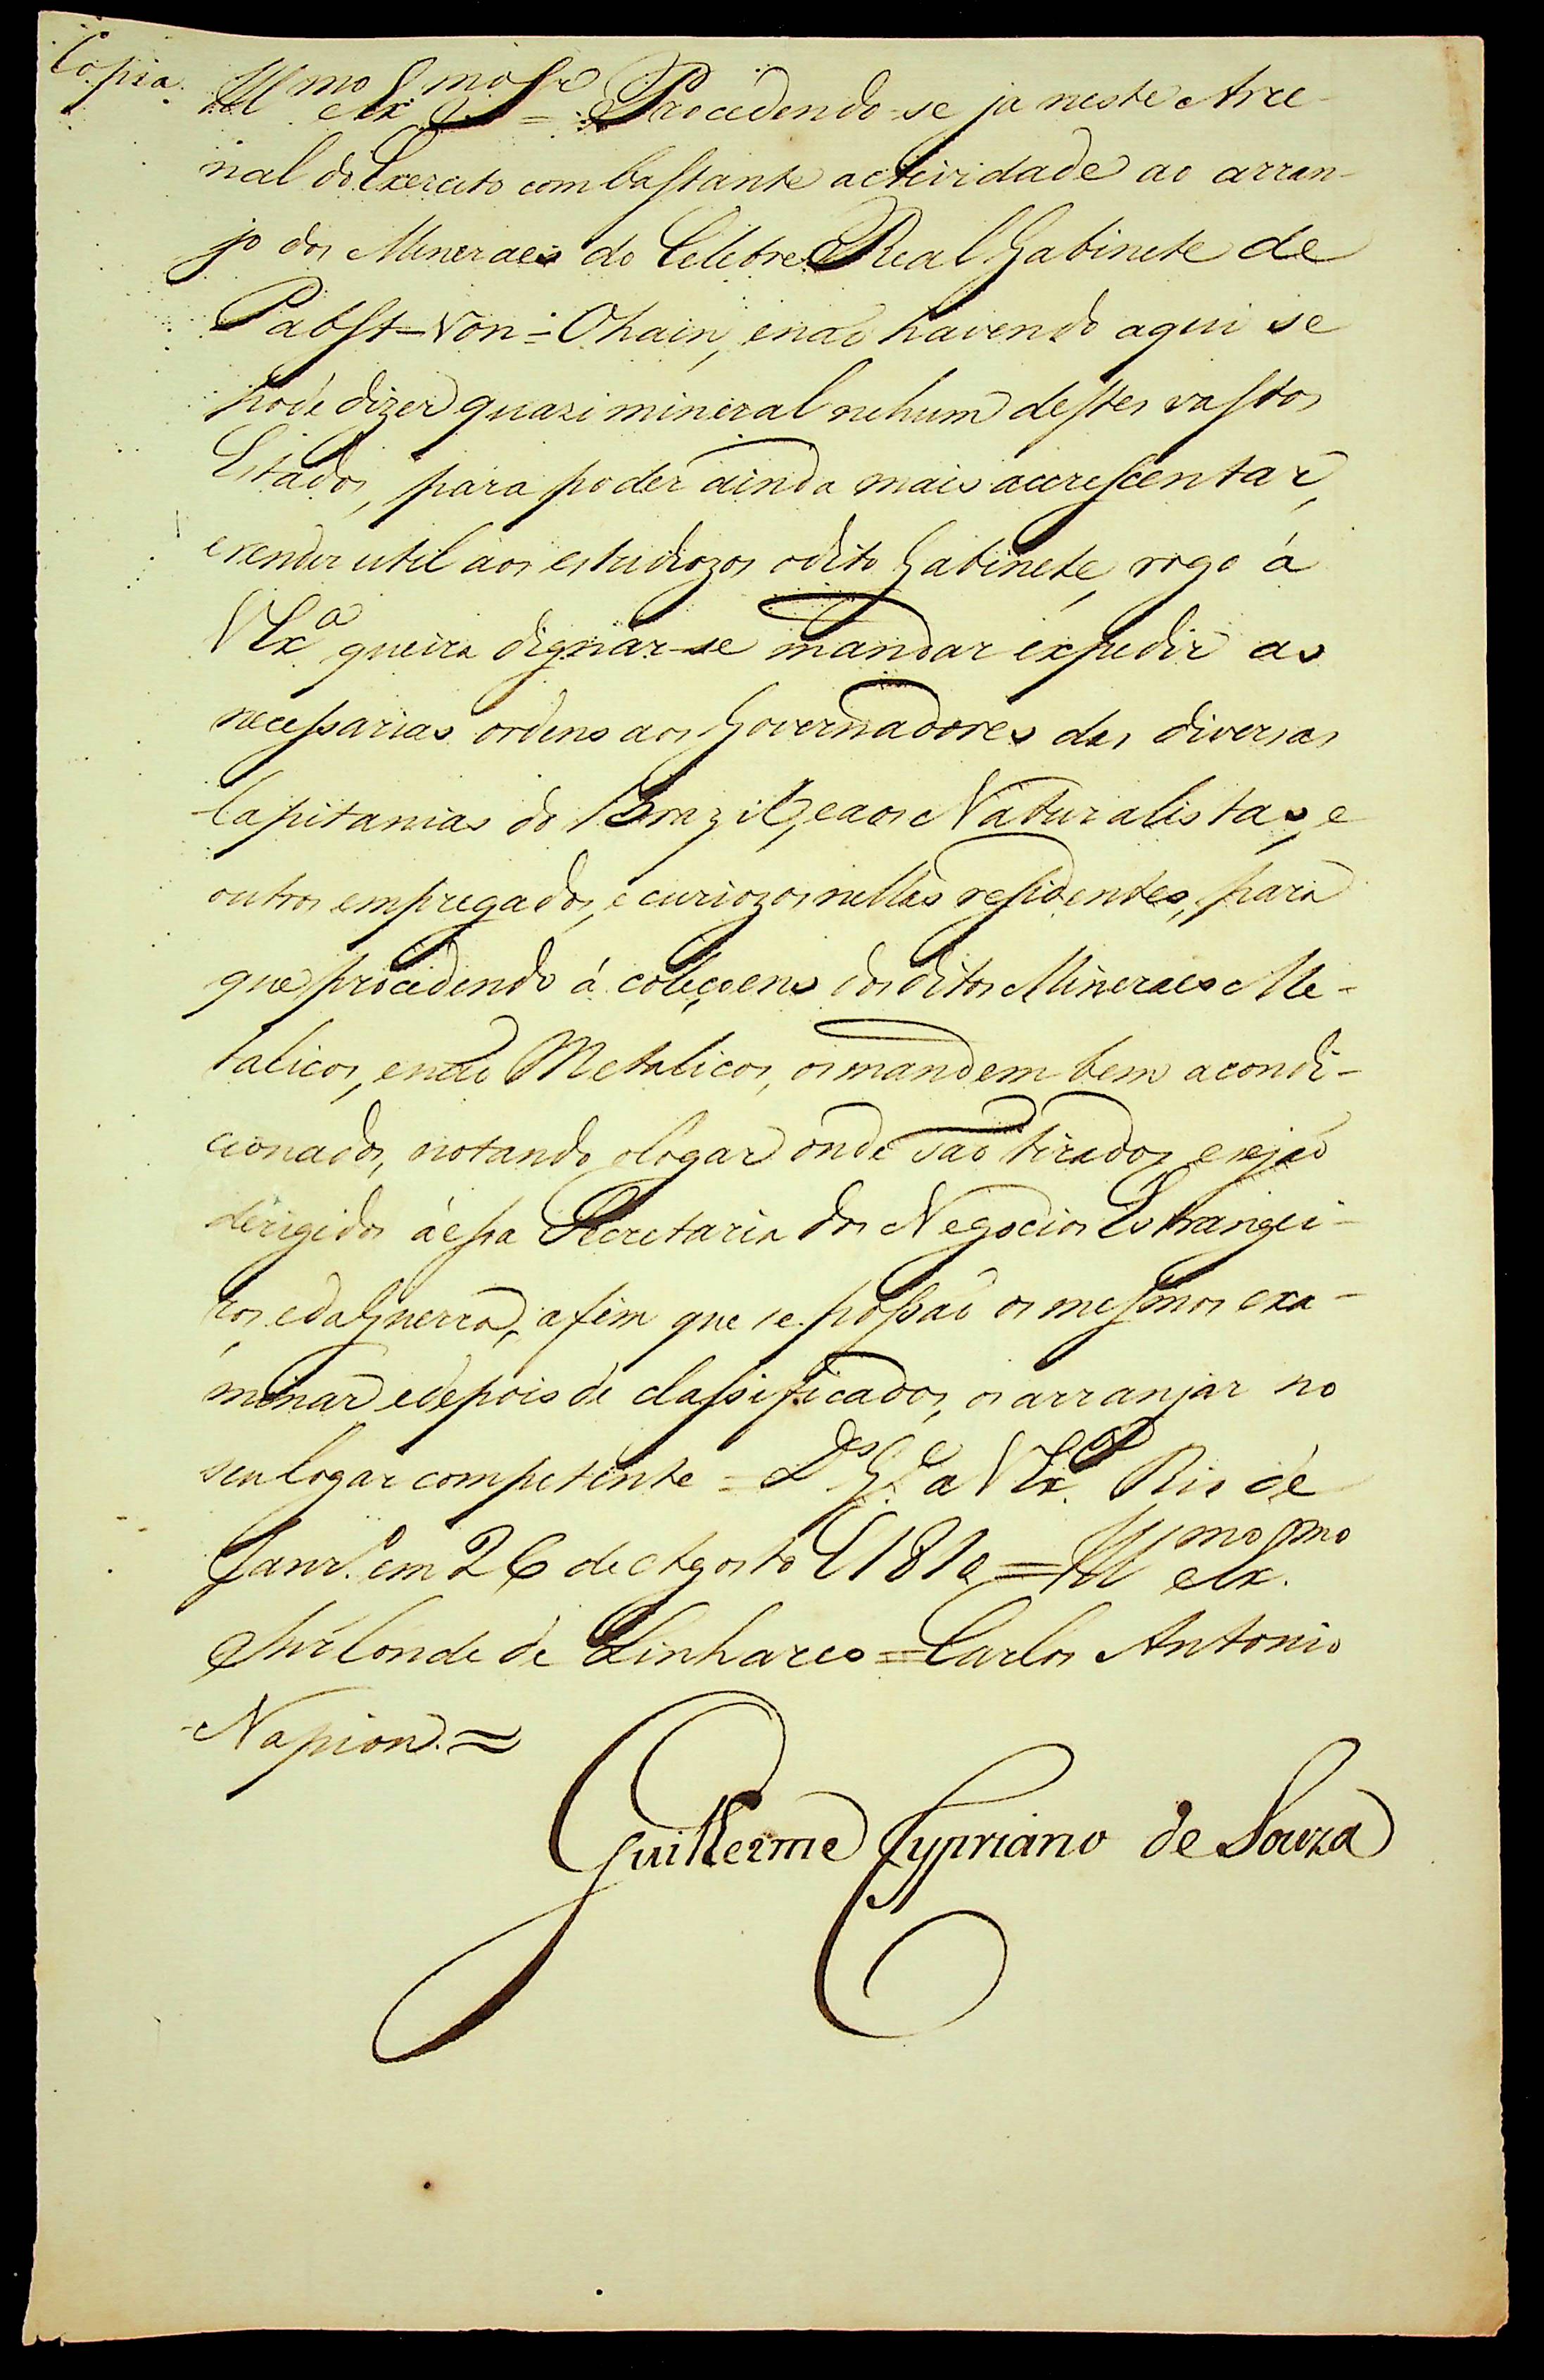 Copia.
Ill.mo e Ex.mo Sr. = Procedendo-se ja neste Arce-
nal do Exercito com bastante actividade ao arran-
jo dos Mineraes do Celebre Real Gabinete de
Pabst-Von-Ohain, enaõ havendo aqui se
pode dizer quazi mineral nehum destes vastos
Estados, para poder ainda mais accrescentar,
e render util aos estudiozos odito Gabinete, rogo á
VExa. queira dignar-se mandar expedir as
necessarias ordens aos Governadores das diversas
Capitanias do Brazil, eaos Naturalistas, e
outros empregados, e curiozos nellas residentes, para
que procedendo á coleçoens dos ditos Mineraes Me-
talicos, enaõ Metalicos, os mandem bem acondi-
cionados, notando ologar onde saõ tirados, esejaõ
dirigidos áessa Secretaria dos Negocios Estrangei-
ros, eda Guerra, afim que se possaõ os mesmos exa-
minar edepois de classificados, os arranjar no
seu logar competente = Ds. G.e a VExa. Rio de
Janr.o em 26 de Agosto de 1810 = Ill.mo e Ex.mo
Snr. Conde de Linhares = Carlos Antonio
Napion. =
Guilherme Cypriano de Souza